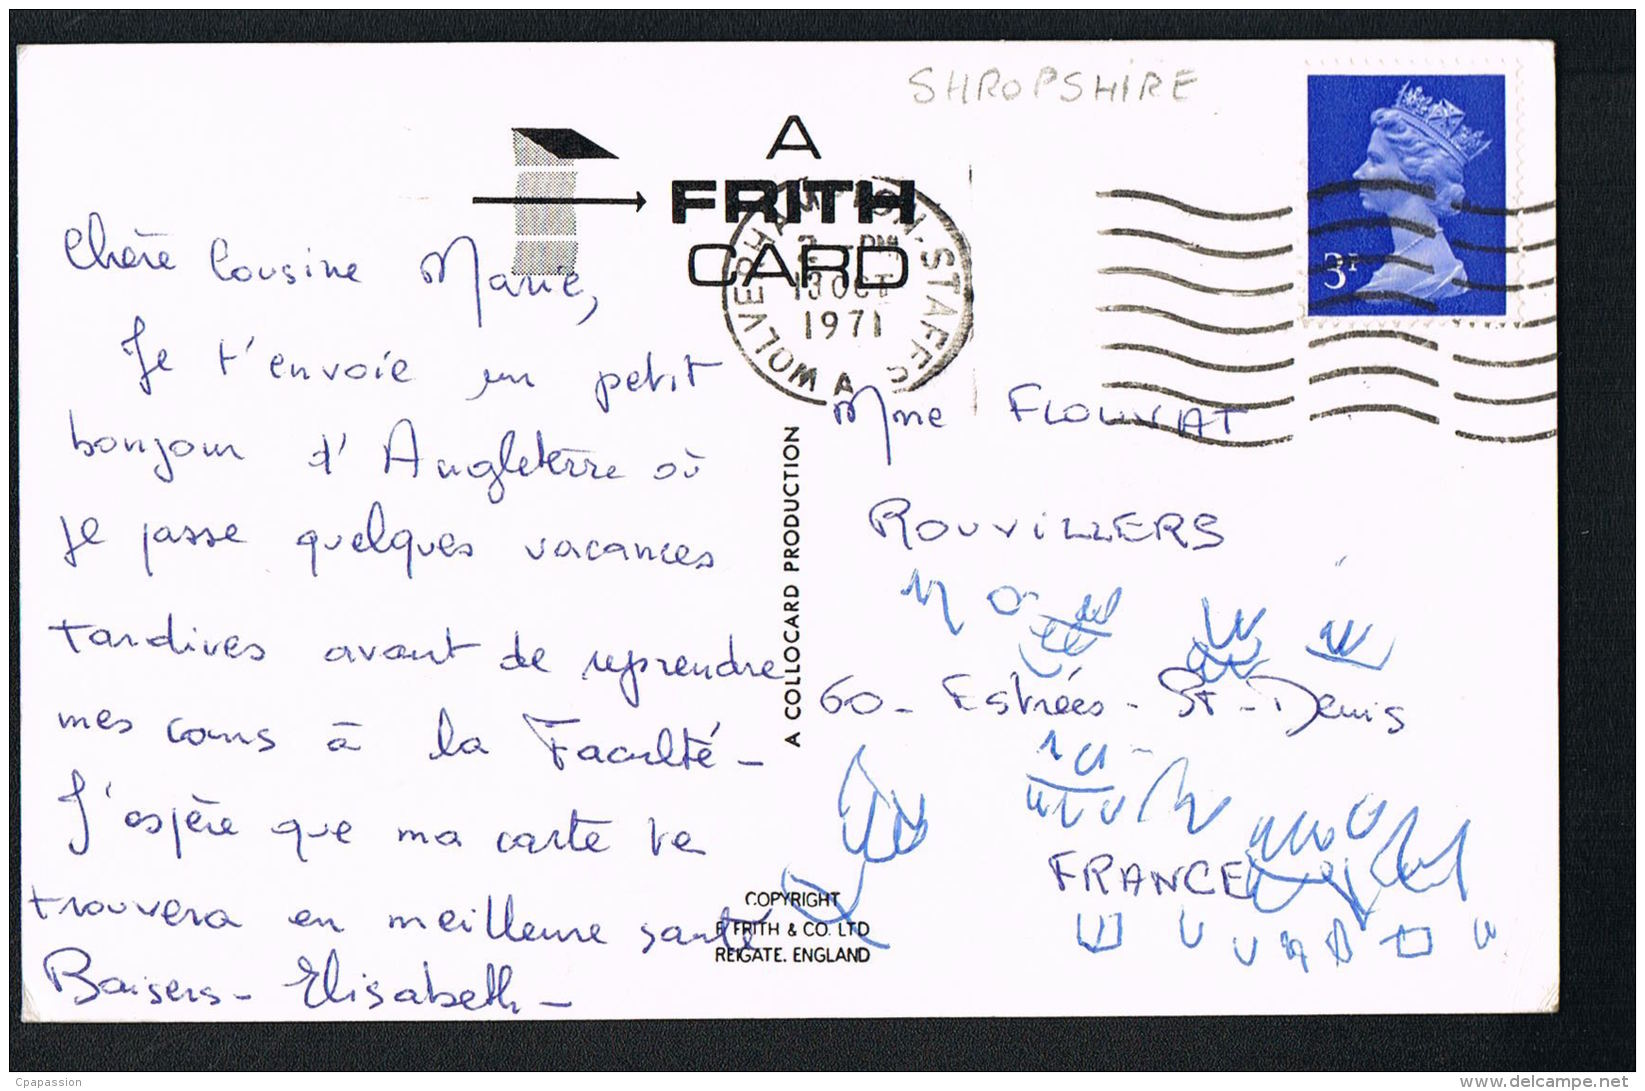 SHROPSHIRE
A
FRITH
CARD
WOLVERHAMPTON·STAFFS
PM
13 OCT
1971
A
3P
Chère Cousine Marie,
Je t'envoie un petit
bonjour d'Angleterre où
je passe quelques vacances
tardives avant de reprendre
mes cours à la Faculté -
J'espère que ma carte te
trouvera en meilleure santé
Baisers - Elisabeth -
A COLLOCARD PRODUCTION
COPYRIGHT
F. FRITH & CO. LTD
REIGATE. ENGLAND
Mme FLOURYAT
ROUVILLERS
60 - Estrées - St - Denis
FRANCE
Cpapassion
www.delcampe.net